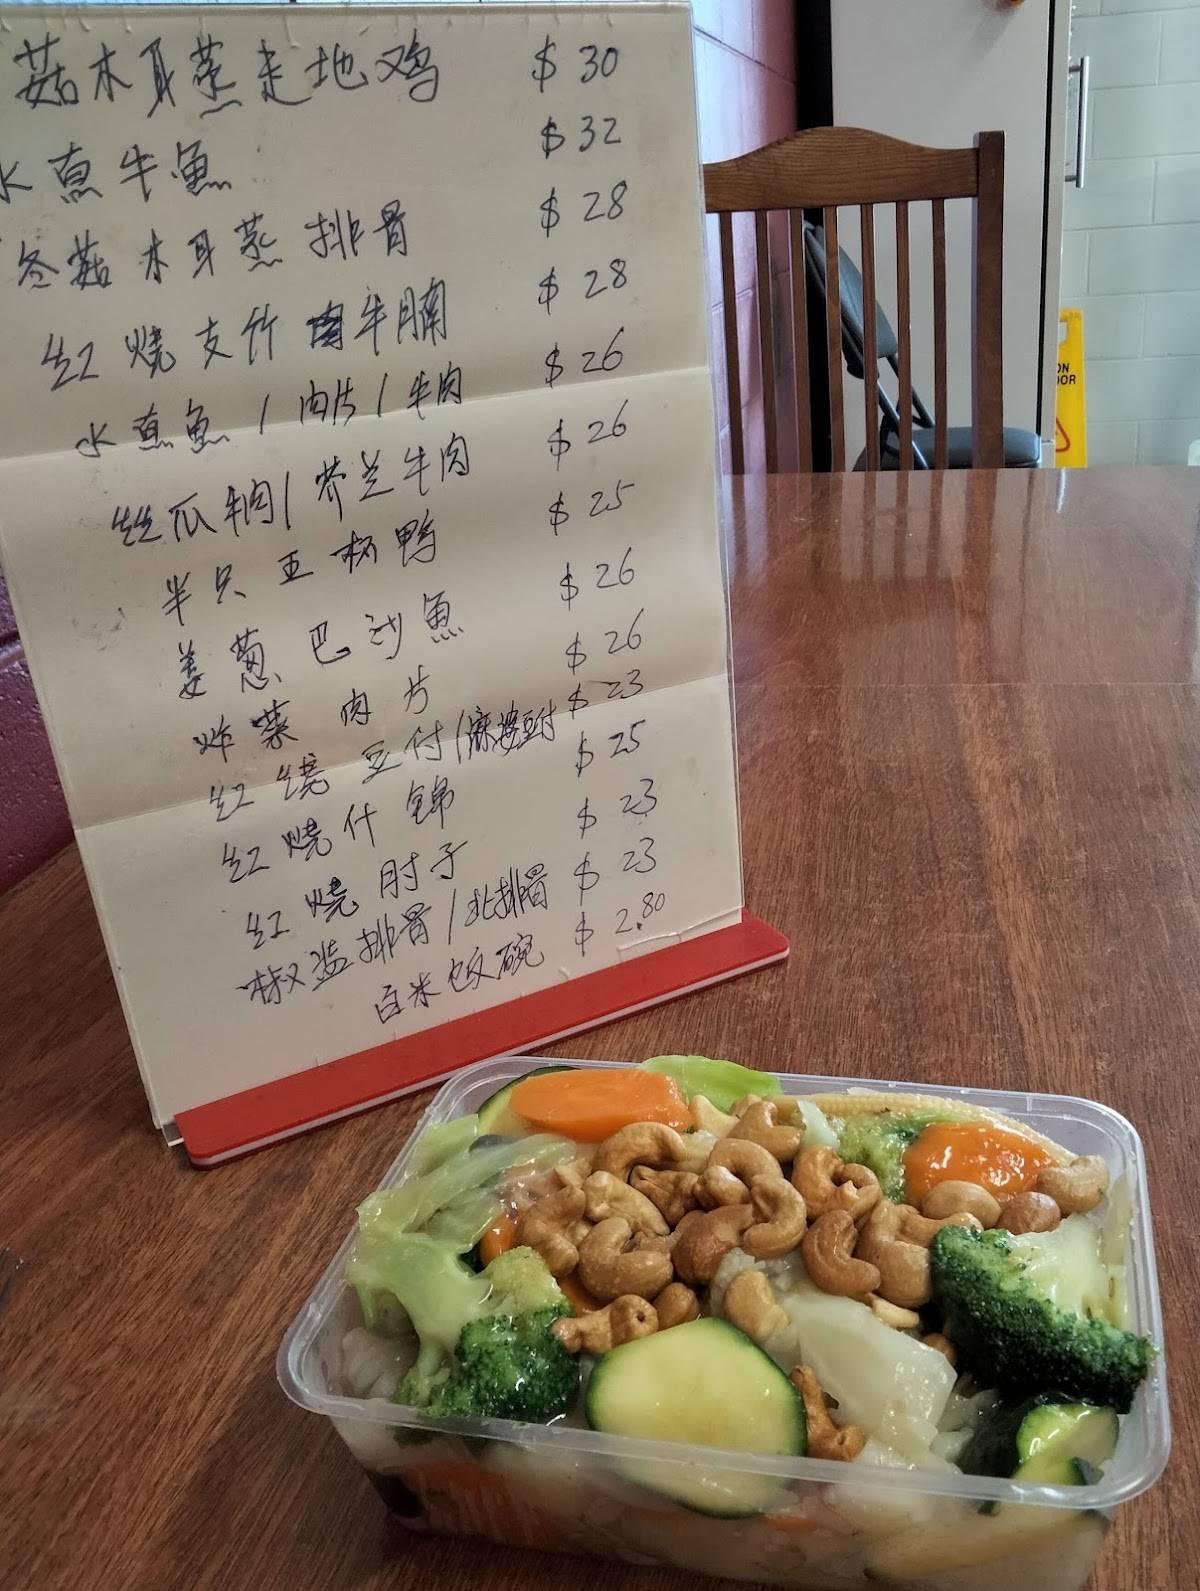 菇木耳蒸走地鸡 $ 30
水煮牛魚 $ 32
冬菇木耳蒸排骨 $ 28
红烧支竹牛腩 $ 28
水煮魚 / 肉片 / 牛肉 $ 26
丝瓜牛肉 / 芥兰牛肉 $ 26
半只三杯鸭 $ 25
姜葱巴沙魚 $ 26
炸菜肉片 $ 26
红烧豆付 / 麻婆豆付 $ 23
红烧什锦 $ 25
红烧肘子 $ 23
椒盐排骨 / 排骨 $ 23
白米饭碗 $ 2.80
ON
OOR